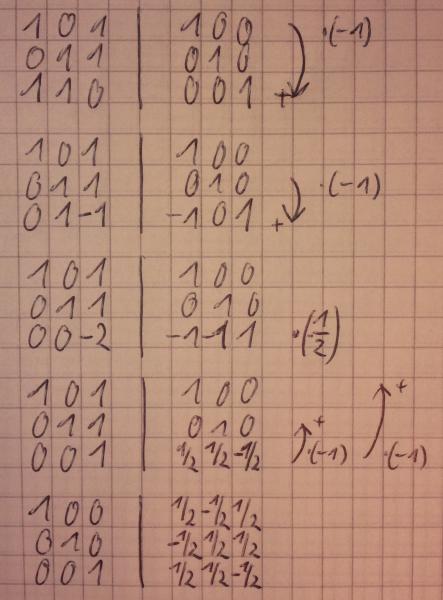 1 0 1 | 1 0 0 ·(-1)
0 1 1 | 0 1 0
1 1 0 | 0 0 1 +
1 0 1 | 1 0 0
0 1 1 | 0 1 0 ·(-1)
0 1 -1 | -1 0 1 +
1 0 1 | 1 0 0
0 1 1 | 0 1 0
0 0 -2 | -1 -1 1 ·(-1/2)
1 0 1 | 1 0 0 +
0 1 1 | 0 1 0 +
0 0 1 | 1/2 1/2 -1/2 ·(-1) ·(-1)
1 0 0 | 1/2 -1/2 1/2
0 1 0 | -1/2 1/2 1/2
0 0 1 | 1/2 1/2 -1/2